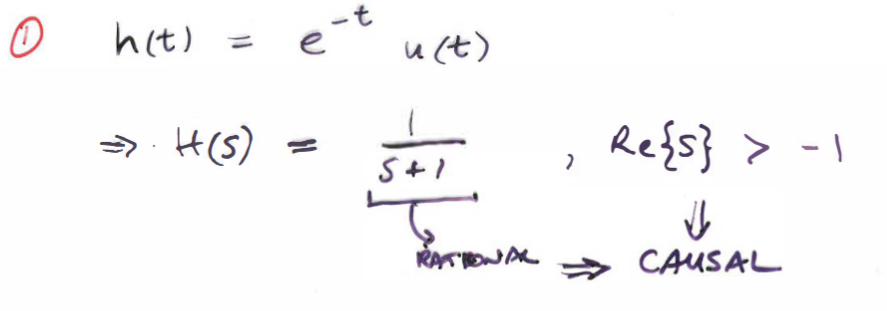 ① h(t) = e^{-t} u(t)
⇒ H(s) = 1/(s+1) , Re{s} > -1
⇓
RATIONAL ⇒ CAUSAL